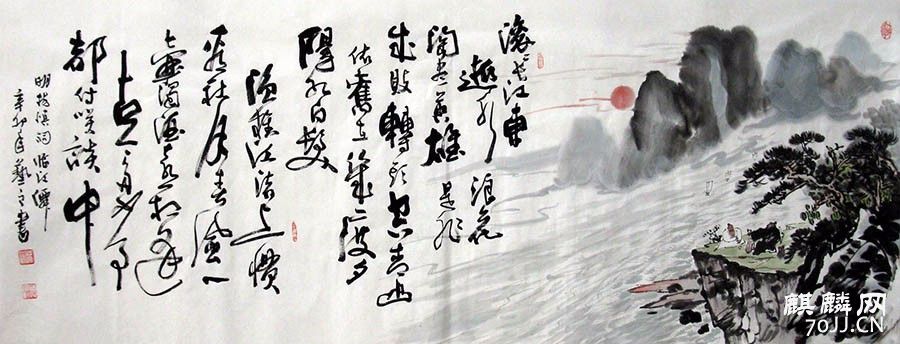 滚滚长江東
逝水浪花
淘尽英雄是非
成敗轉头空青山
依舊在幾度夕
陽红白髮
渔樵江渚上慣
看秋月春風一
壶濁酒喜相逢
古今多少事
都付笑談中
明杨慎词临江仙
辛卯年藝書
麒麟网
70JJ.CN